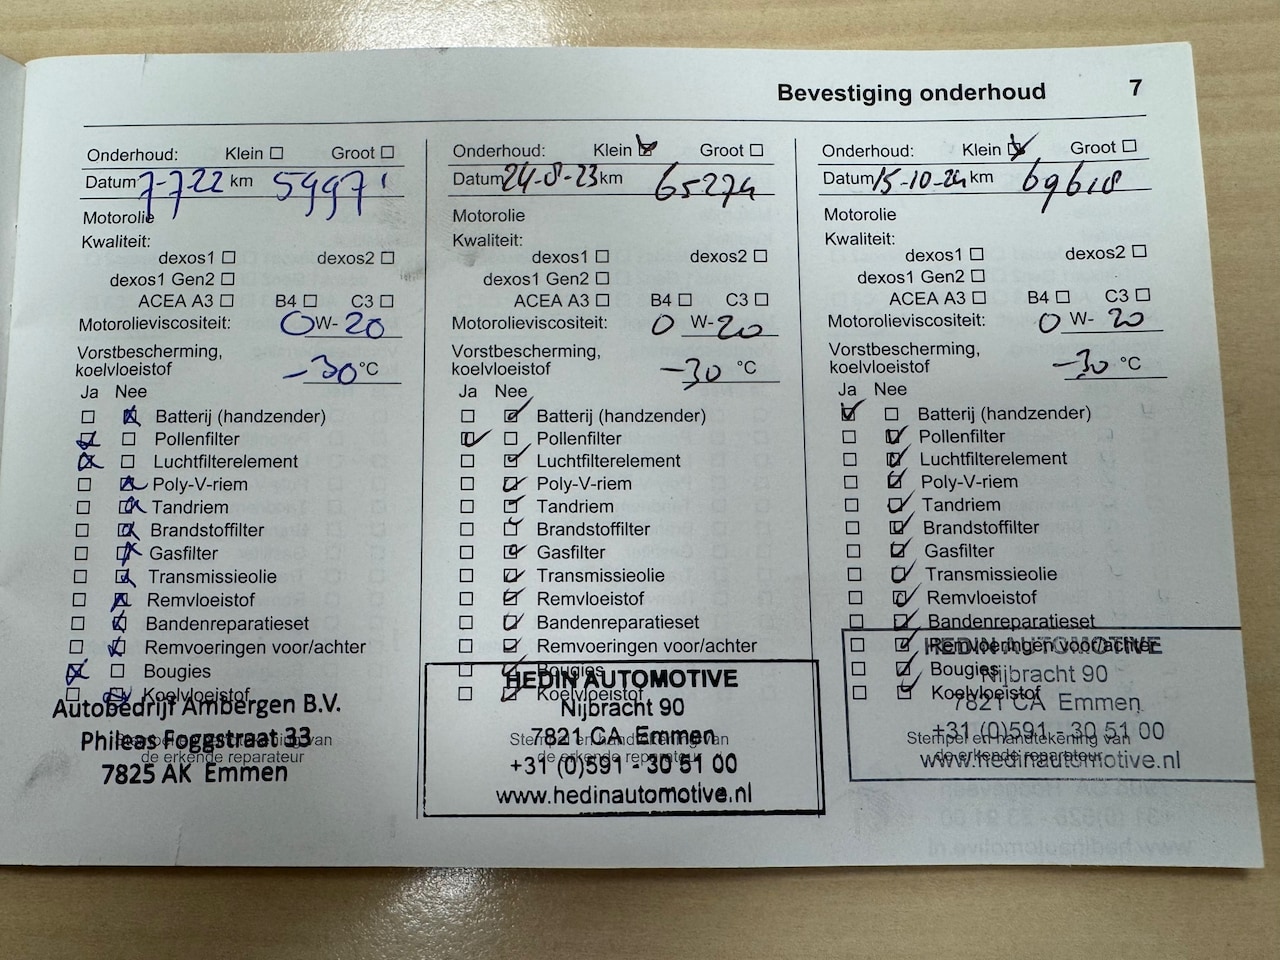 Bevestiging onderhoud 7
Onderhoud: Klein Groot
Datum 7-7-22 km 59971
Motorolie
Kwaliteit:
dexos1 dexos2
dexos1 Gen2
ACEA A3 B4 C3
Motorolieviscositeit: 0 W- 20
Vorstbescherming,
koelvloeistof -30 °C
Ja Nee
Batterij (handzender)
Pollenfilter
Luchtfilterelement
Poly-V-riem
Tandriem
Brandstoffilter
Gasfilter
Transmissieolie
Remvloeistof
Bandenreparatieset
Remvoeringen voor/achter
Bougies
Koelvloeistof
Autobedrijf Ambergen B.V.
Phileas Foggstraat 33
7825 AK Emmen
Stempel en handtekening van
de erkende reparateur
Onderhoud: Klein Groot
Datum 24-8-23 km 65274
Motorolie
Kwaliteit:
dexos1 dexos2
dexos1 Gen2
ACEA A3 B4 C3
Motorolieviscositeit: 0 W- 20
Vorstbescherming,
koelvloeistof -30 °C
Ja Nee
Batterij (handzender)
Pollenfilter
Luchtfilterelement
Poly-V-riem
Tandriem
Brandstoffilter
Gasfilter
Transmissieolie
Remvloeistof
Bandenreparatieset
Remvoeringen voor/achter
Bougies
Koelvloeistof
HEDIN AUTOMOTIVE
Nijbracht 90
7821 CA Emmen
+31 (0)591 - 30 51 00
www.hedinautomotive.nl
Stempel en handtekening van
de erkende reparateur
Onderhoud: Klein Groot
Datum 15-10-24 km 69618
Motorolie
Kwaliteit:
dexos1 dexos2
dexos1 Gen2
ACEA A3 B4 C3
Motorolieviscositeit: 0 W- 20
Vorstbescherming,
koelvloeistof -30 °C
Ja Nee
Batterij (handzender)
Pollenfilter
Luchtfilterelement
Poly-V-riem
Tandriem
Brandstoffilter
Gasfilter
Transmissieolie
Remvloeistof
Bandenreparatieset
Remvoeringen voor/achter
Bougies
Koelvloeistof
HEDIN AUTOMOTIVE
Nijbracht 90
7821 CA Emmen
+31 (0)591 - 30 51 00
www.hedinautomotive.nl
Stempel en handtekening van
de erkende reparateur